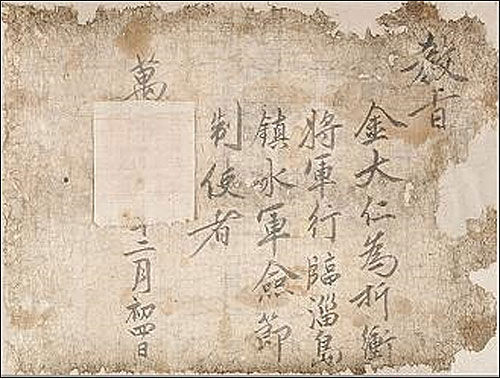 教旨
金大仁為折衝
將軍行臨淄島
鎮水軍僉節
制使者
萬
十二月初四日